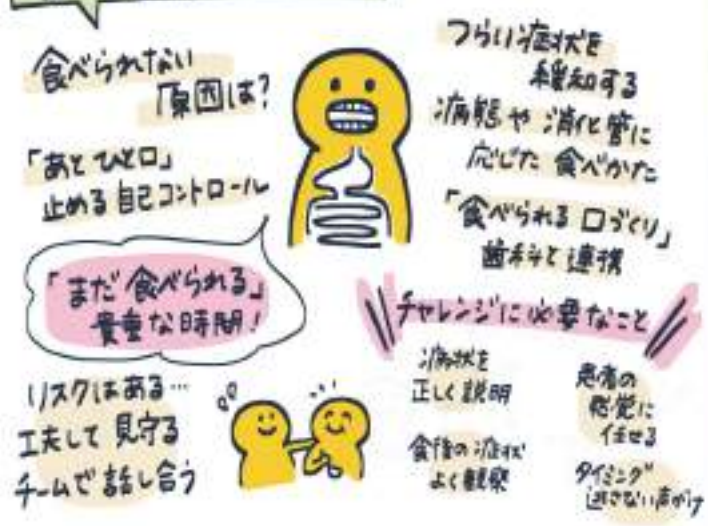 食べられない
原因は?
「あとひと口」
止める自己コントロール
「まだ食べられる」
貴重な時間!
リスクはある…
工夫して見守る
チームで話し合う
つらい症状を
緩和する
病態や消化管に
応じた食べかた
「食べられる口づくり」
歯科と連携
チャレンジに必要なこと
病状を
正しく説明
食後の症状
よく観察
患者の
感覚に
任せる
タイミング
逃さない声かけ